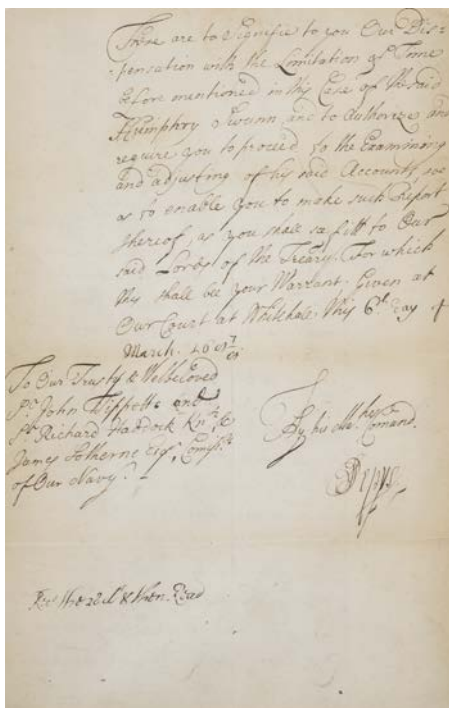 These are to Signifie to you Our Dis=
=pensation with the Limitation of Time
before mentioned in this Case of the said
Humphry and to Authorize and
require you to proceed to the Examining
and adjusting of his said Accounts, soe
as to enable you to make such Report
thereof, as you shall see fitt to Our
said Lords of the Treãry. For which
this shall be your Warrant. Given at
Our Court at Whitehall this 6th day of
March. 168 7/8
To Our Trusty & Welbeloved
Sr. John Tippetts and
Sr. Richard Haddock Knts. &
James Sotherne Esqr. Comissrs.
of Our Navy.
By his Mats. Comand.
SPepys
Recd. the 20th & then Read